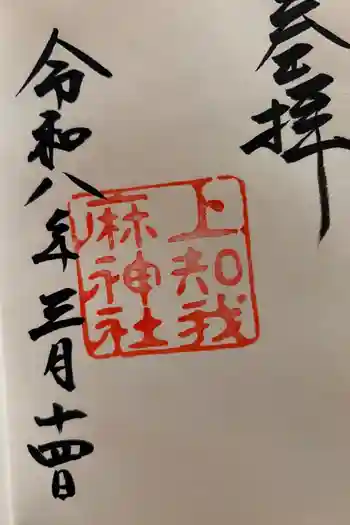 参拝
上知我
麻神社
令和八年三月十四日